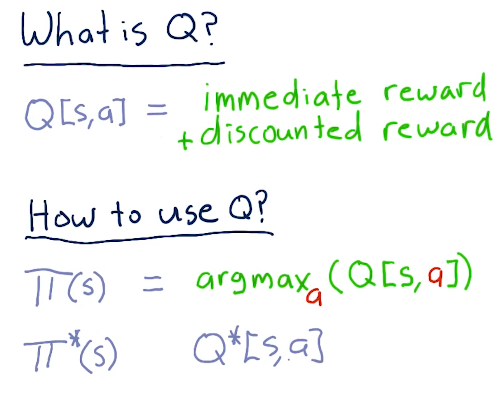 What is Q?
Q[s,a] = immediate reward
+ discounted reward
How to use Q?
Π(s) = argmaxₐ(Q[s,a])
Π*(s) Q*[s,a]